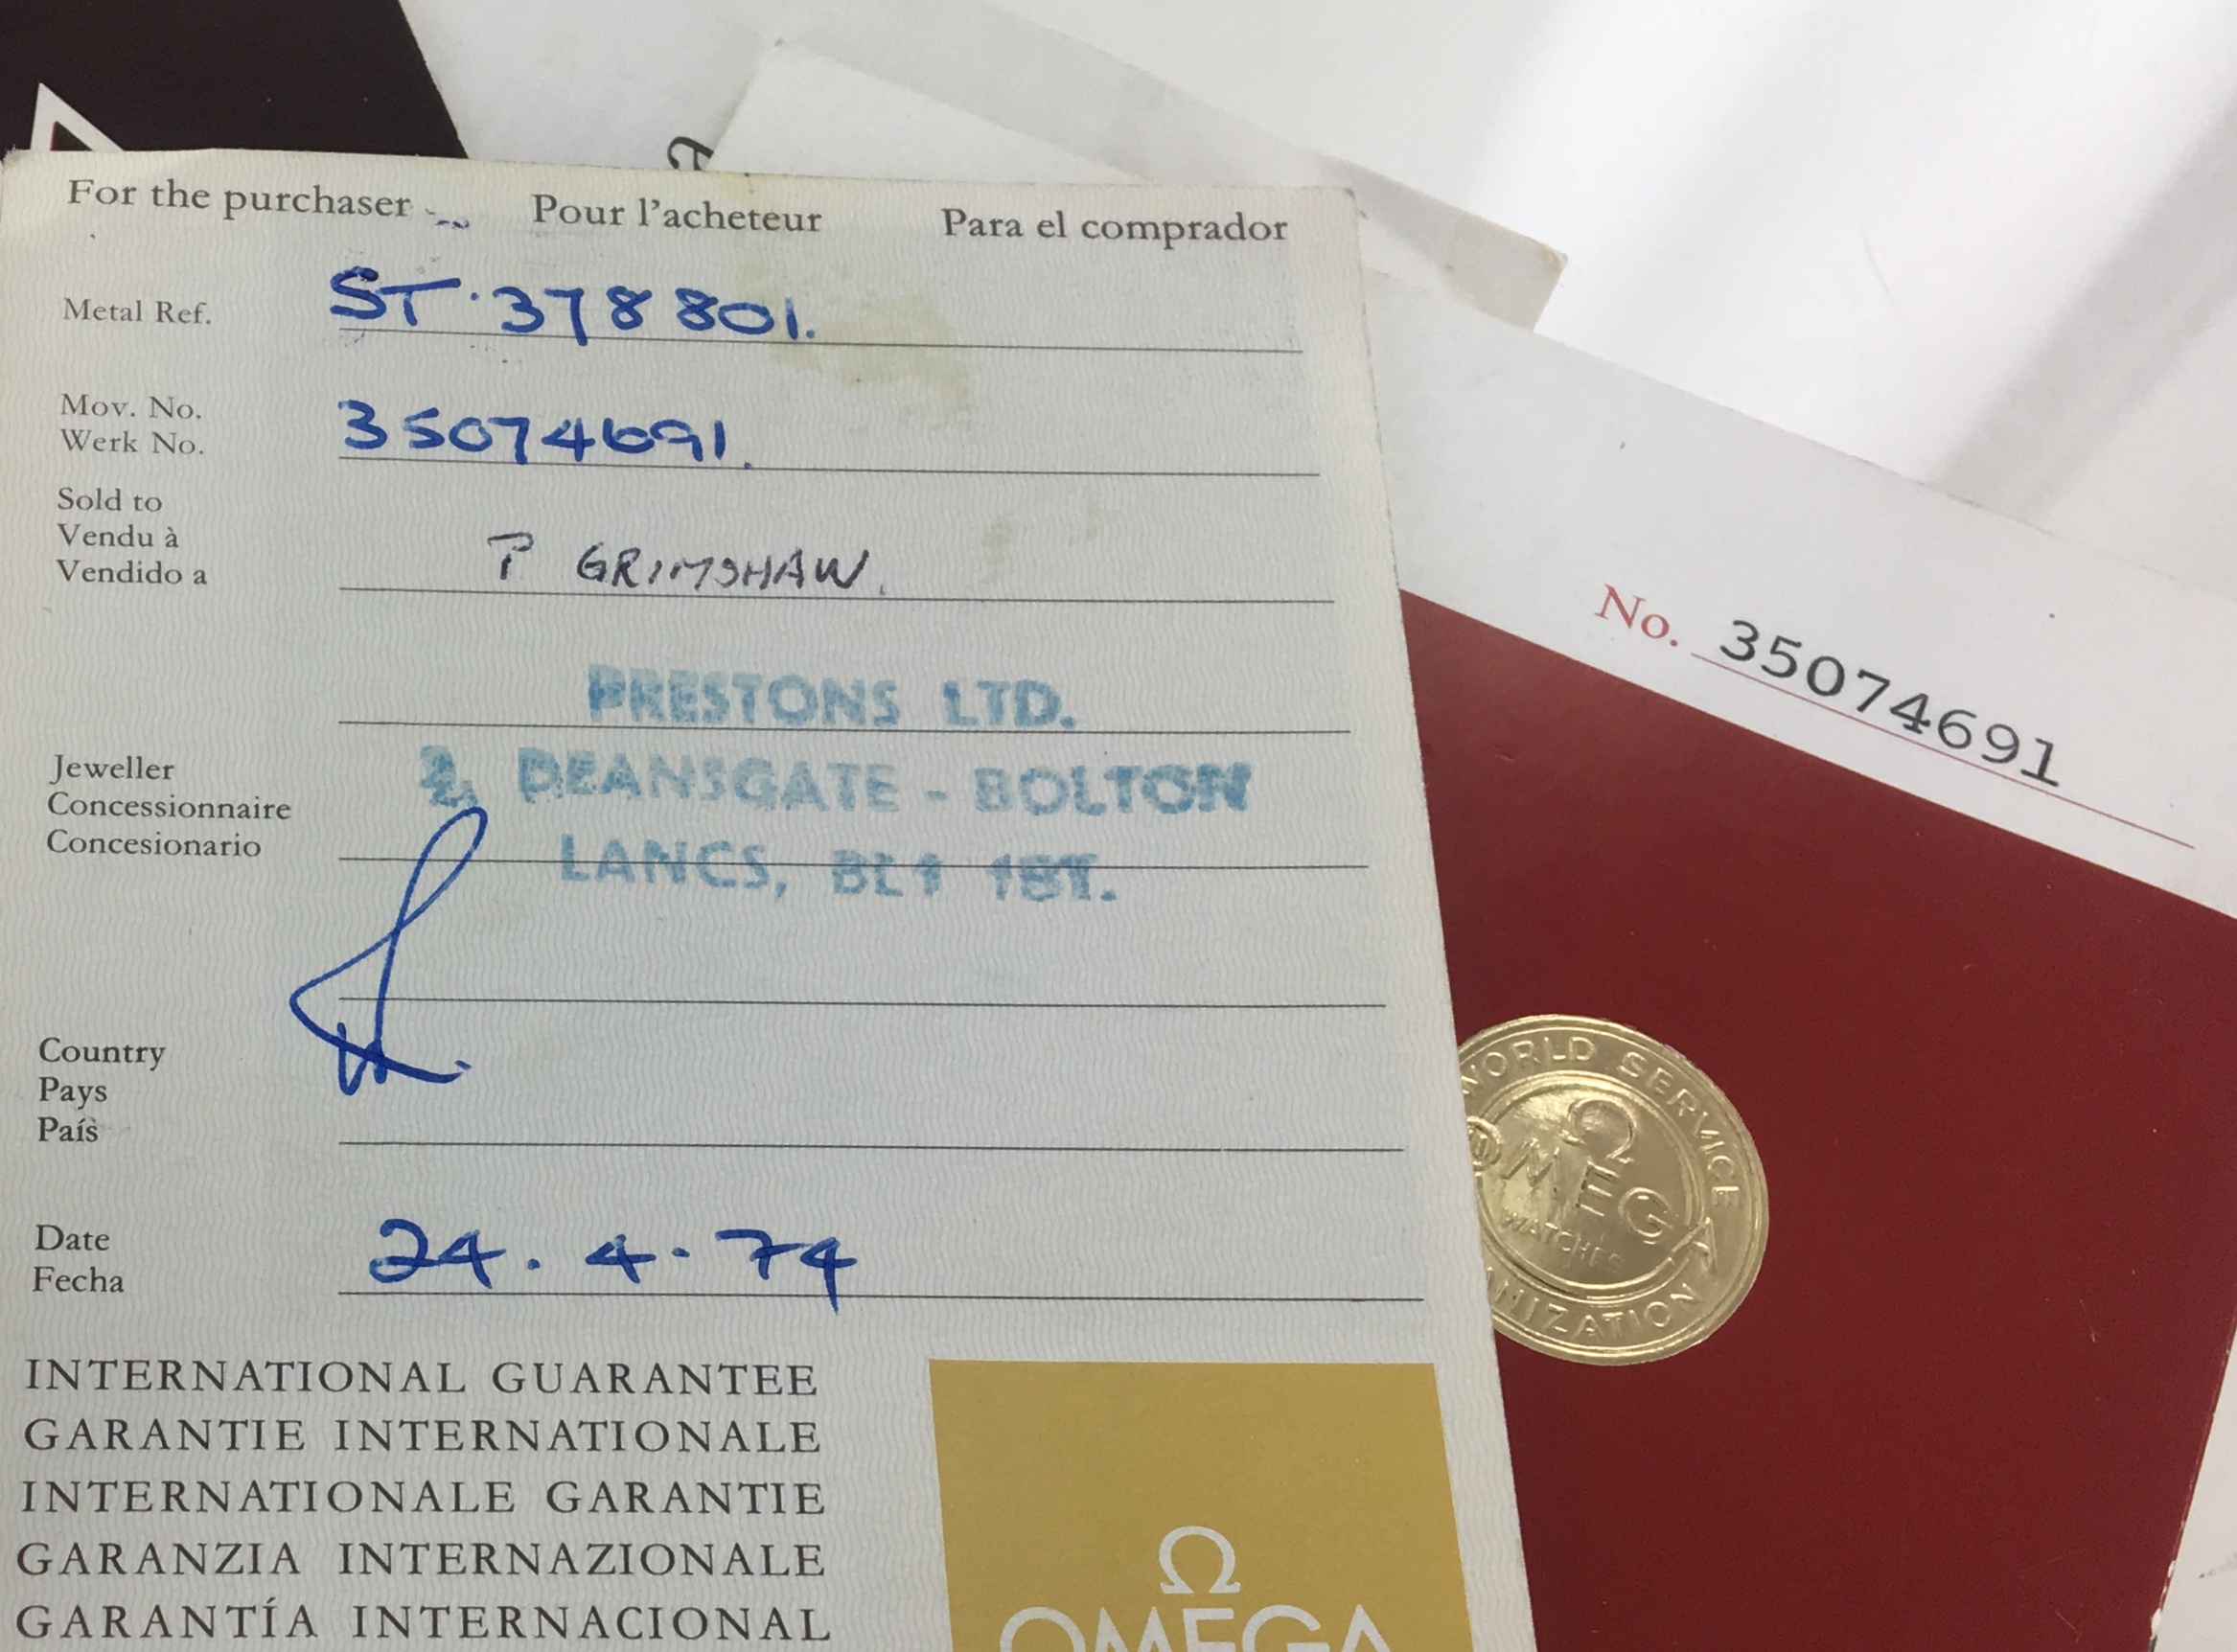 For the purchaser Pour l'acheteur Para el comprador
Metal Ref. ST·378801.
Mov. No.
Werk No. 35074691.
Sold to
Vendu à
Vendido a P GRIMSHAW.
PRESTONS LTD.
Jeweller
Concessionnaire
Concesionario
DEANSGATE - BOLTON
LANCS, BL1 1BT.
Country
Pays
País
Date
Fecha 24.4.74
INTERNATIONAL GUARANTEE
GARANTIE INTERNATIONALE
INTERNATIONALE GARANTIE
GARANZIA INTERNAZIONALE
GARANTÍA INTERNACIONAL
Ω
OMEGA
No. 35074691
WORLD SERVICE
Ω
OMEGA
WATCHES